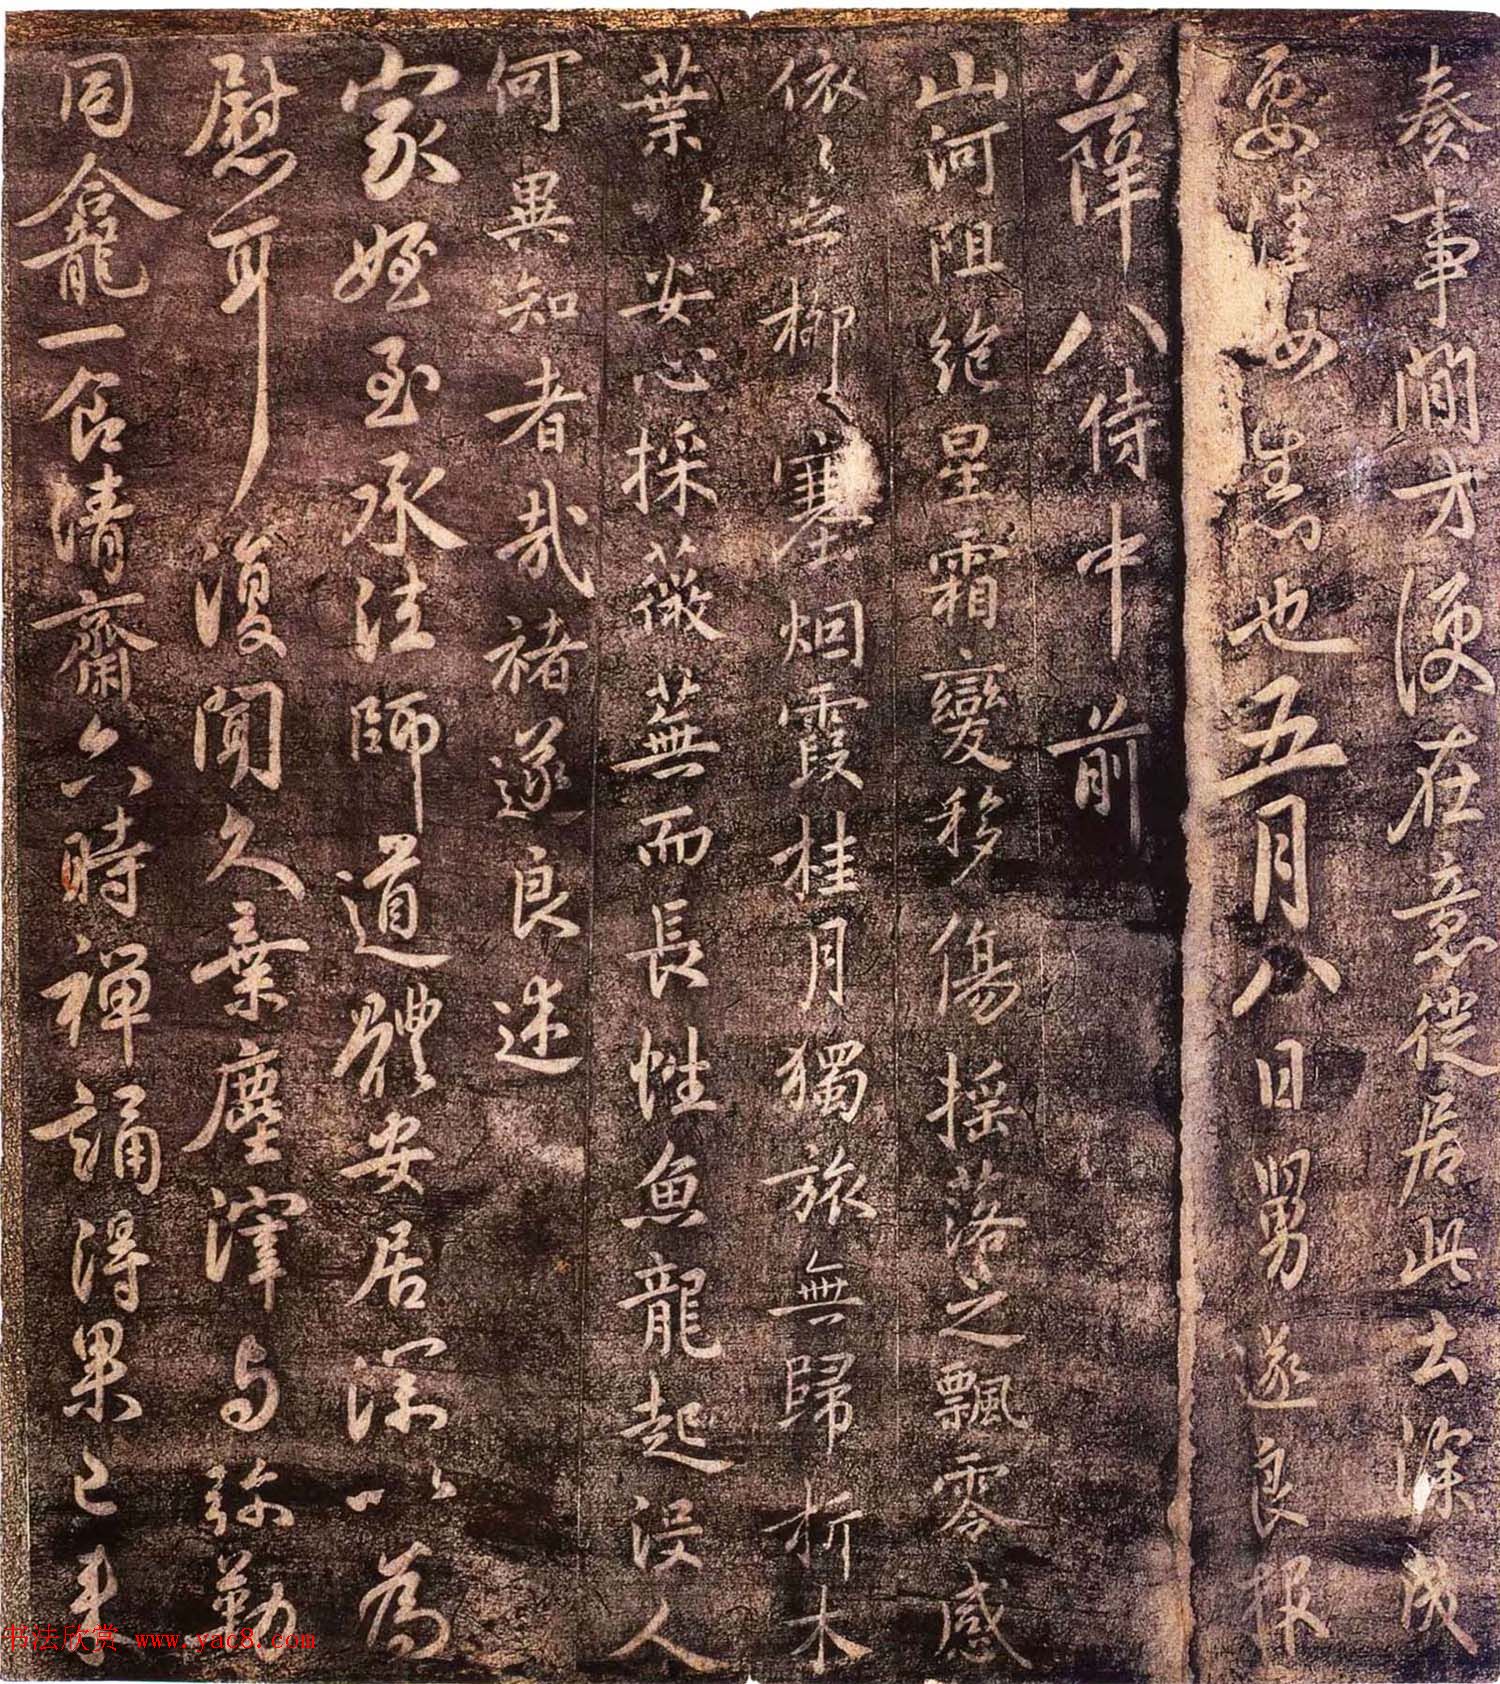 奏事閒方便在意從居此去深
要也五月八日舅遂良報
薛八侍中前
山河阻絶星霜變移傷搖落之飄零感
依〻之柳塞烟霞桂月獨旅無歸折木
葉以安心採薇蕪而長性魚龍起没人
何異知者哉褚遂良述
家姪至承法師道體安居深以為
慰耳復聞久棄塵滓与弥勒
同龕一食清齋六時禪誦得果已來
书法欣赏 www.yac8.com